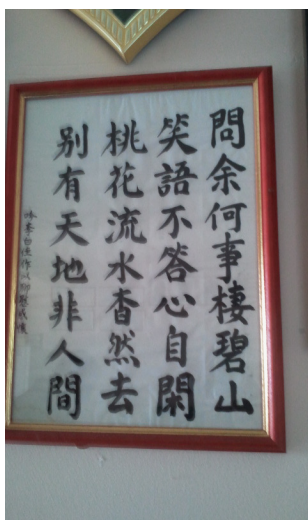 問余何事棲碧山
笑語不答心自閑
桃花流水杳然去
別有天地非人間